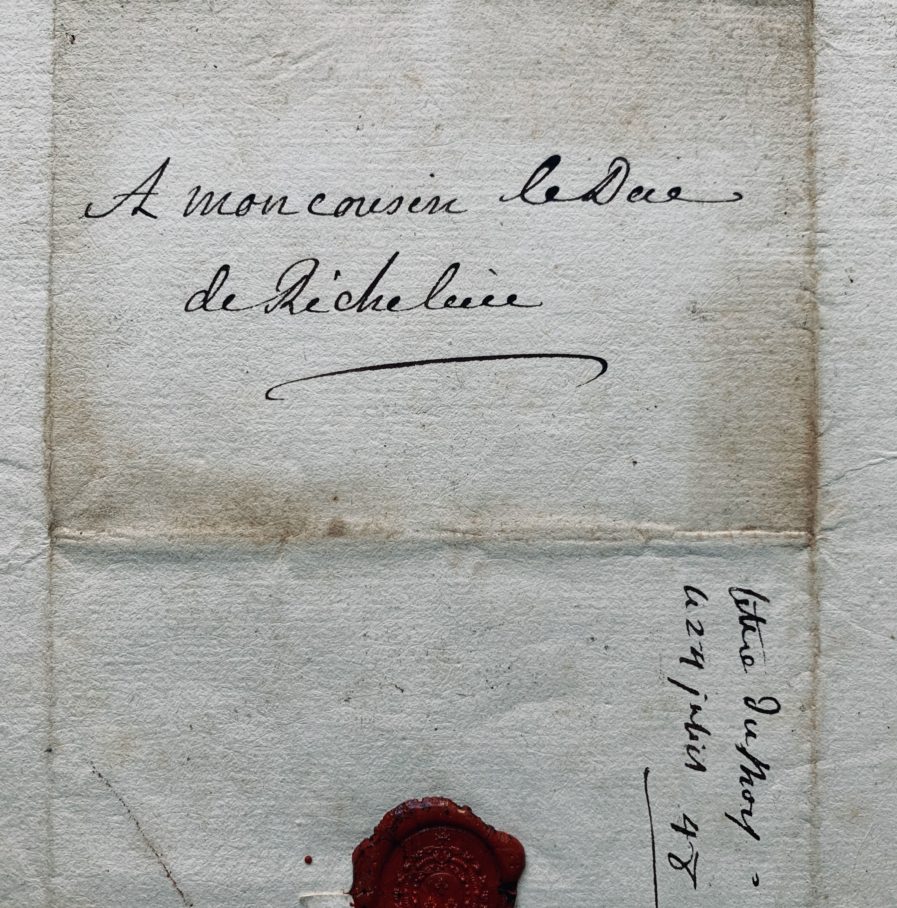 A mon cousin le Duc
de Richelieu
lettre du Roy
le 24 juliet 48